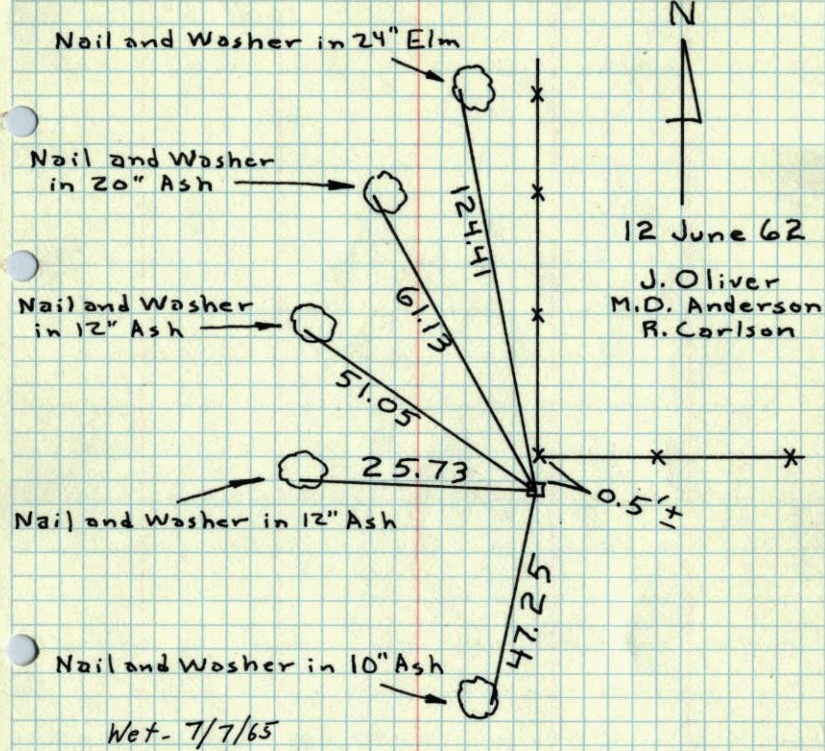 N
Nail and Washer in 24" Elm
Nail and Washer
in 20" Ash
124.41
12 June 62
J. Oliver
M.D. Anderson
R. Carlson
61.13
Nail and Washer
in 12" Ash
51.05
25.73
0.5'±
Nail and Washer in 12" Ash
47.25
Nail and Washer in 10" Ash
Wet- 7/7/65